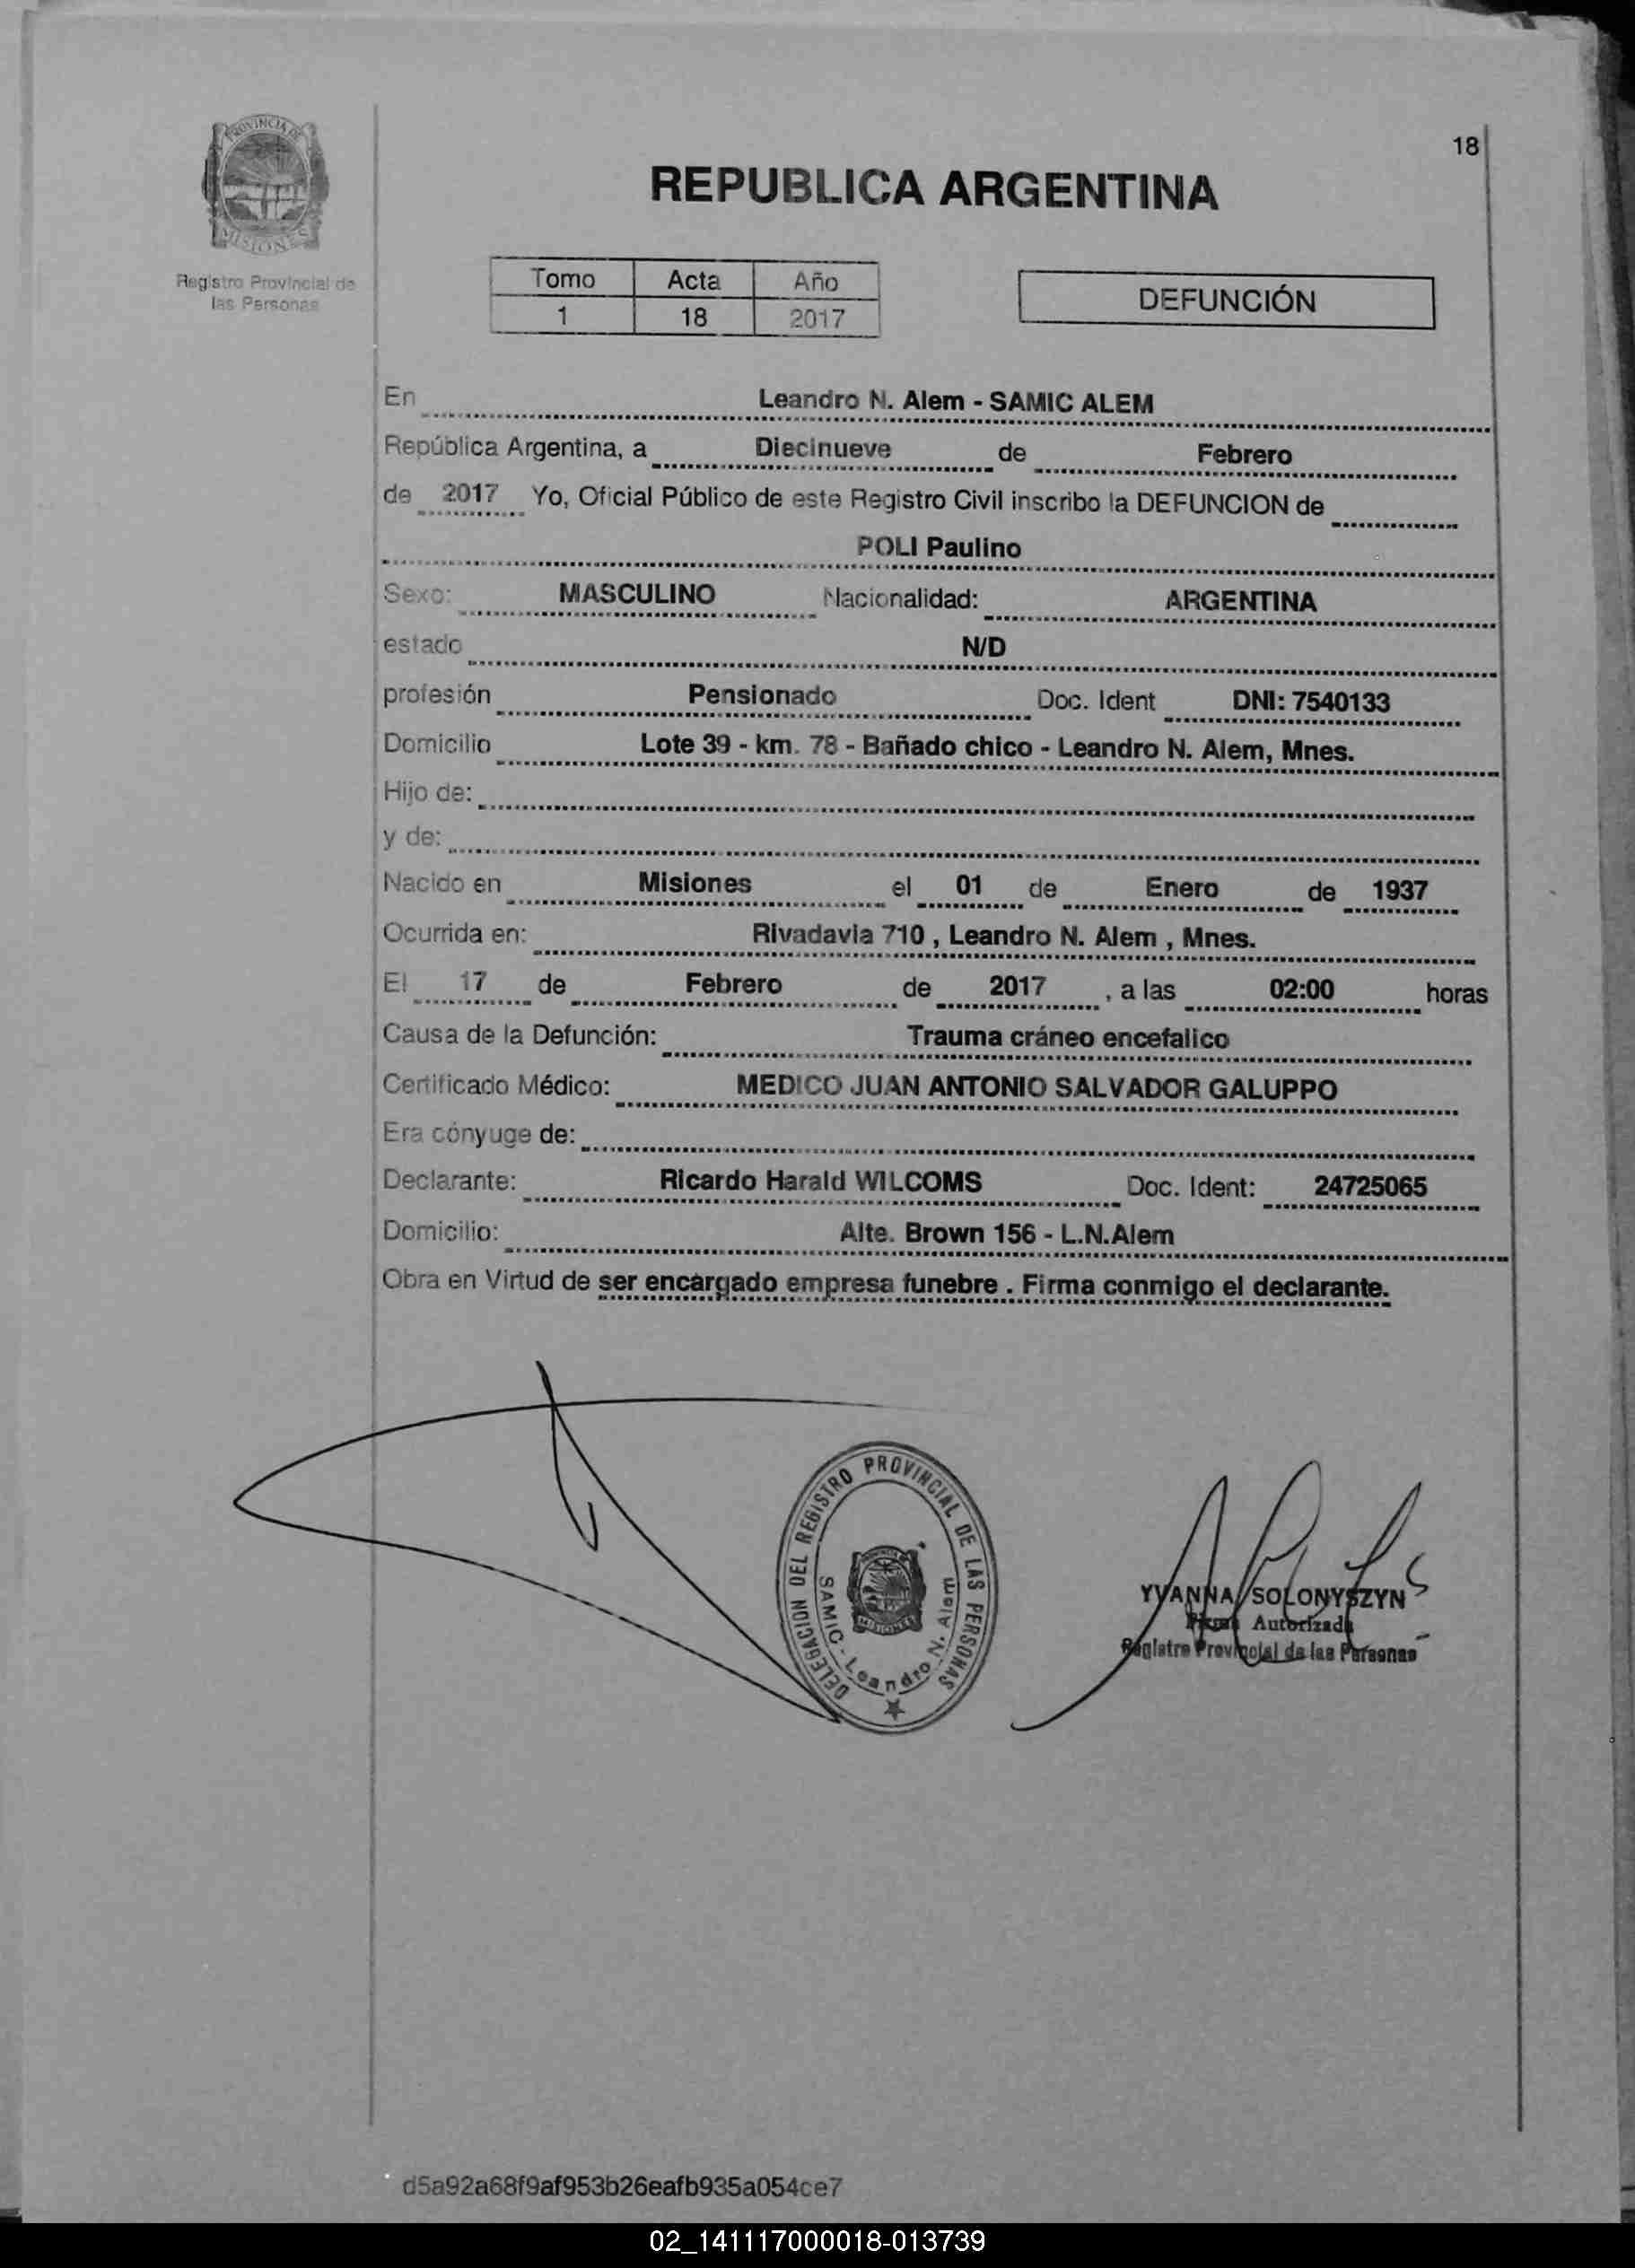 PROVINCIA DE
MISIONES
Registro Provincial de
las Personas
18
REPUBLICA ARGENTINA
Tomo Acta Año
1 18 2017
DEFUNCIÓN
En Leandro N. Alem - SAMIC ALEM
República Argentina, a Diecinueve de Febrero
de 2017 Yo, Oficial Público de este Registro Civil inscribo la DEFUNCION de
POLI Paulino
Sexo: MASCULINO Nacionalidad: ARGENTINA
estado N/D
profesión Pensionado Doc. Ident DNI: 7540133
Domicilio Lote 39 - km. 78 - Bañado chico - Leandro N. Alem, Mnes.
Hijo de:
y de:
Nacido en Misiones el 01 de Enero de 1937
Ocurrida en: Rivadavia 710 , Leandro N. Alem , Mnes.
El 17 de Febrero de 2017 , a las 02:00 horas
Causa de la Defunción: Trauma cráneo encefalico
Certificado Médico: MEDICO JUAN ANTONIO SALVADOR GALUPPO
Era cónyuge de:
Declarante: Ricardo Harald WILCOMS Doc. Ident: 24725065
Domicilio: Alte. Brown 156 - L.N.Alem
Obra en Virtud de ser encargado empresa funebre . Firma conmigo el declarante.
DELEGACION DEL REGISTRO PROVINCIAL DE LAS PERSONAS
SAMIC - Leandro N. Alem
YVANNA SOLONYSZYN
Firma Autorizada
Registro Provincial de las Personas
d5a92a68f9af953b26eafb935a054ce7
02_141117000018-013739